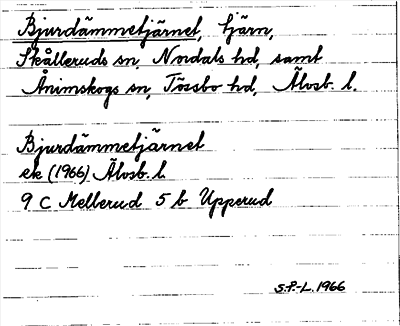 Bjurdämmetjärnet, tjärn,
Skålleruds sn, Nordals hd, samt
Ånimskogs sn, Tössbo hd, Älvsb. l.
Bjurdämmetjärnet
ek (1966) Älvsb. l.
9 C Mellerud 5 b Upperud
S.P.-L. 1966